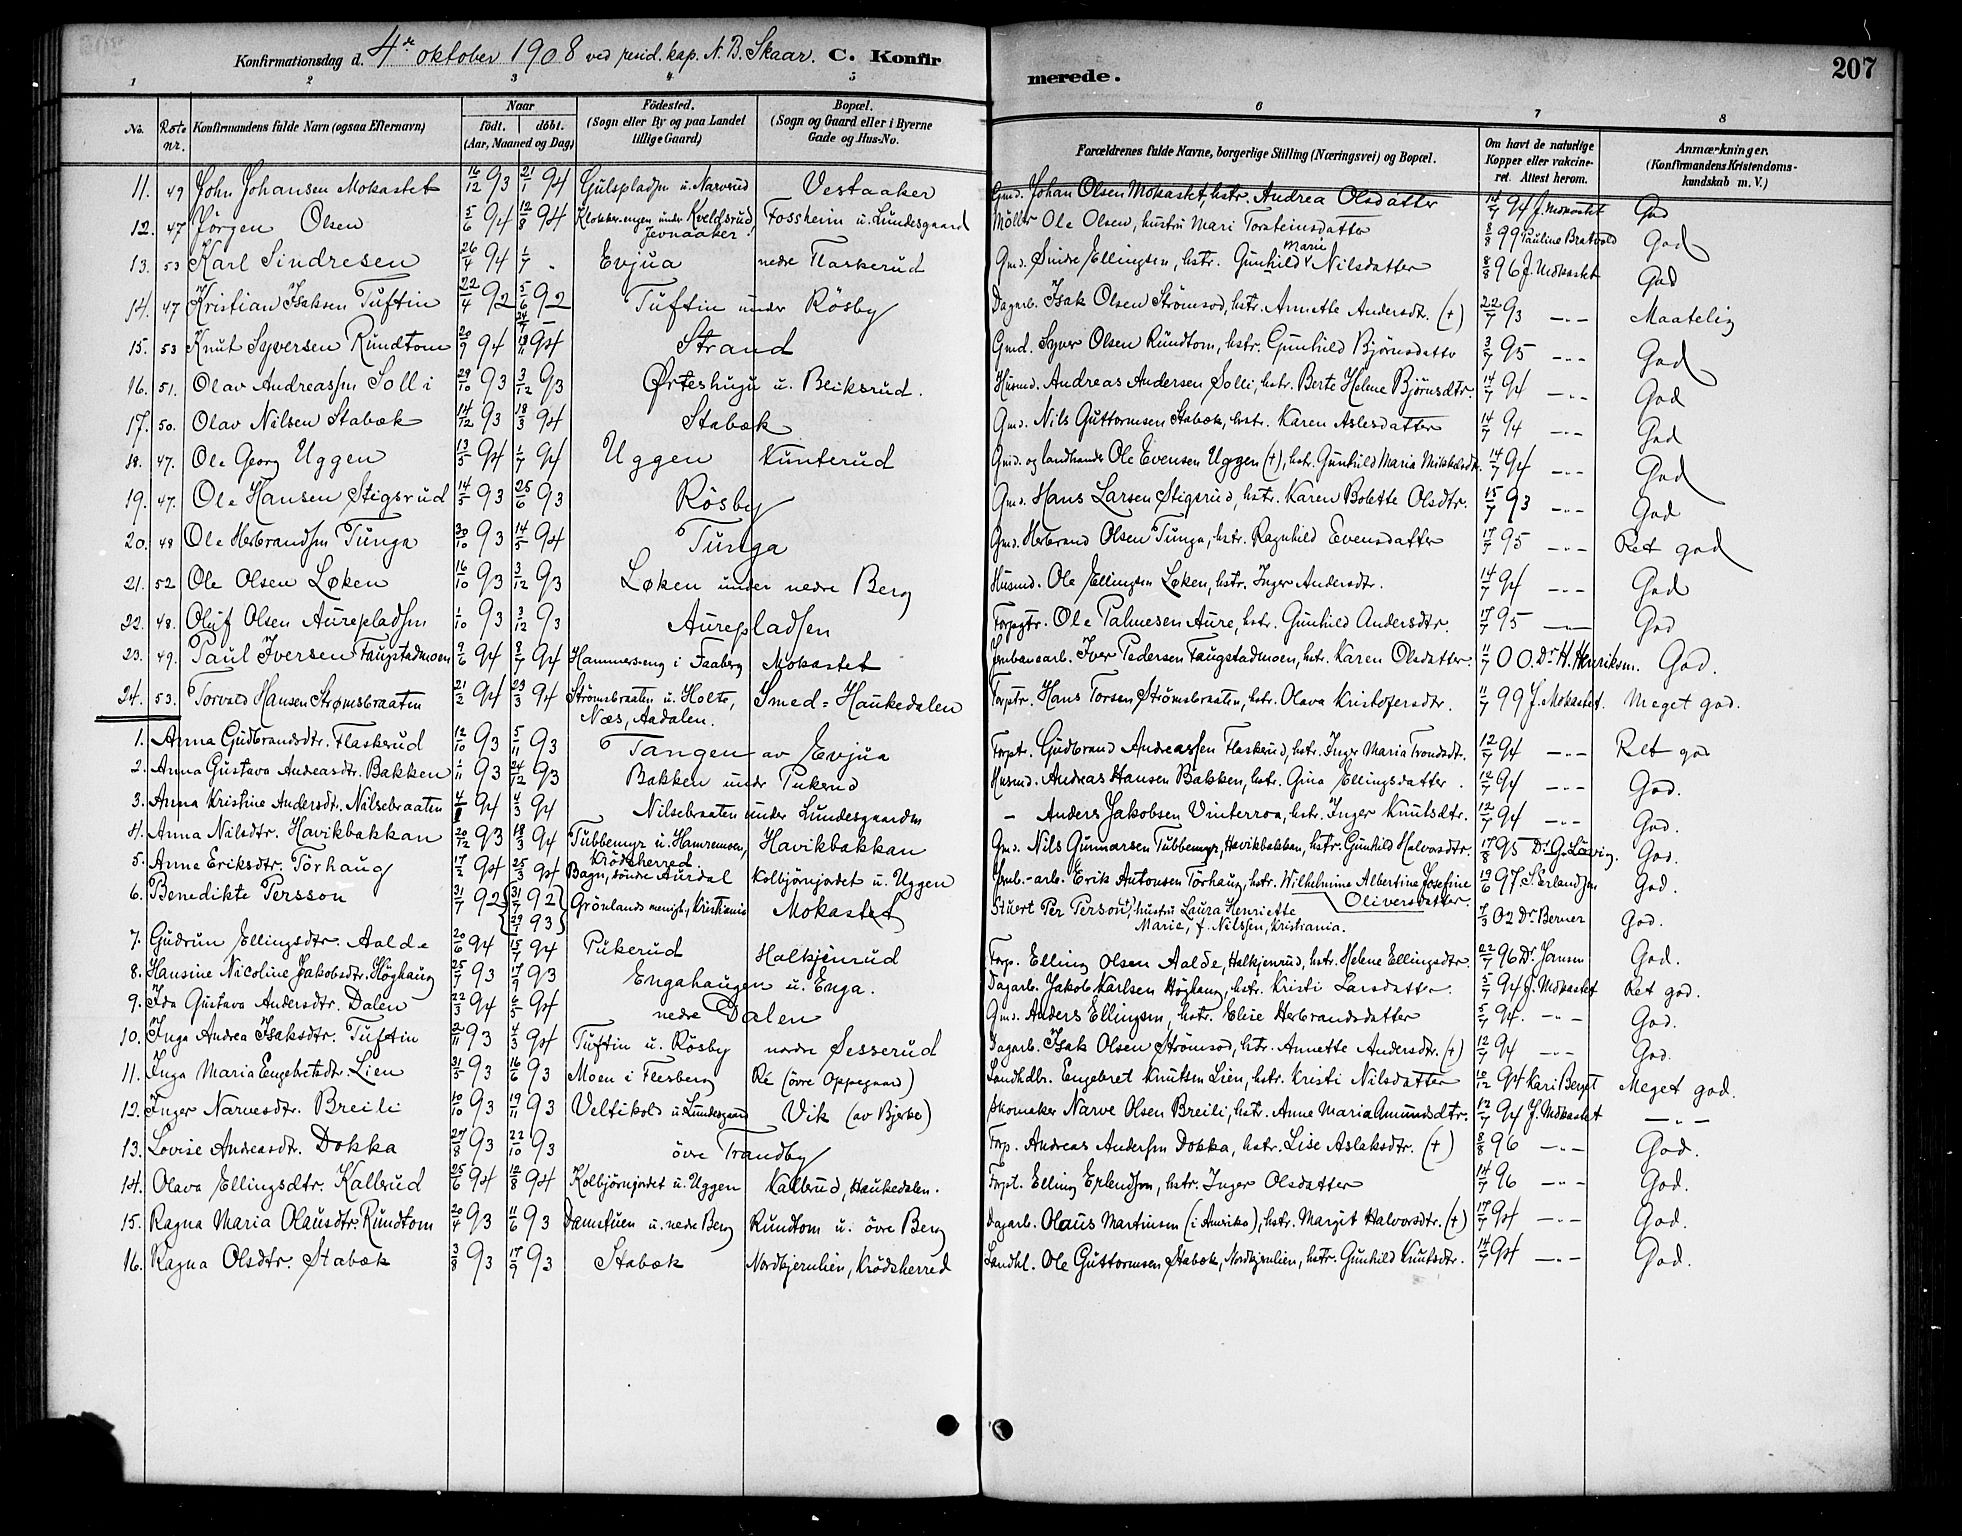 Konfirmationsdag d. 4de oktober 1908 ved resid. kap. N. B. Skaar. C. Konfirmerede. 207
1 2 3 4 5 6 7 8
No. Rote nr. Konfirmandens fulde Navn (ogsaa Efternavn) Naar født. døbt. (Aar, Maaned og Dag) Fødested. (Sogn eller By og paa Landet tillige Gaard) Bopæl. (Sogn og Gaard eller i Byerne Gade og Hus-No. Forældrenes fulde Navne, borgerlige Stilling (Næringsvei) og Bopæl. Om havt de naturlige Kopper eller vakcineret. Attest herom. Anmærkninger. (Konfirmandens Kristendomskundskab m. V.)
11. 49 John Johansen Mokastet 16/12 93 21/1 94 Gulspladsen u. Narverud Vestaaker Gmd. Johan Olsen Mokastet, hstr. Andrea Olsdatter 14/7 94 J. Mokastet God
12. 47 Jörgen Olsen 5/6 94 12/8 94 Klokkerengen under Kveldsrud Jevnaaker! Fossheim u. Lundesgaard Möller Ole Olsen, hustru Mari Torsteinsdatter 8/8 99 Pauline Bratvold God
13. 53 Karl Sindresen 26/4 94 1/7 - Evjua nedre Flaskerud Gmd. Sindre Ellingsen, hstr. Gunhild Marie Nilsdatter 8/8 96 J. Mokastet God
14. 47 Kristian Isaksen Tuftin 22/4 92 5/6 92 Tuftin under Rösby Dagarb. Isak Olsen Strömsod, hstr. Annette Andersdt. (+) 22/7 93 -"- Maatelig
15. 53 Knut Syversen Rundtom 20/9 94 18/11 94 Strand Gmd. Syver Olsen Rundtom, hstr. Gunhild Björnsdatter 3/7 95 -"- God
16. 51. Olav Andreassen Solli 29/10 93 3/12 93 Ørteshugu u. Beiksrud. Husmd. Andreas Andersen Solli, hstr. Berte Helene Björnsdtr. 14/7 94 -"- God
17. 50. Olav Nilsen Stabæk 14/12 93 18/3 94 Stabæk Gmd. Nils Guttormsen Stabæk, hstr. Karen Aslesdatter 14/7 94 -"- God
18. 47. Ole Georg Uggen 13/5 94 1/7 94 Uggen Kunterud Gmd. og landhandl. Ole Evensen Uggen (+), hstr. Gunhild Maria Mikkelsdt. 14/7 94 -"- God
19. 47. Ole Hansen Stigsrud 14/5 93 25/6 93 Rösby Gmd. Hans Larsen Stigsrud, hstr. Karen Bolette Olsdtr. 15/7 93 -"- God
20. 48 Ole Herbrandsen Tunga 30/10 93 14/5 94 Tunga Gmd. Herbrand Olsen Tunga, hstr. Ragnhild Evensdatter 17/7 95 -"- Ret god
21. 52 Ole Olsen Løken 16/10 93 3/12 93 Løken under nedre Berg Husmd. Ole Ellingsen Løken, hstr. Inger Andersdtr. 14/7 94 -"- God
22. 48. Oluf Olsen Aurepladsen 1/10 93 3/12 93 Aurepladsen Forpgtr. Ole Palmesen Aure, hstr. Gunhild Andersdtr. 17/7 95 -"- God
23. 49. Paul Iversen Faugstadmoen 9/6 94 8/7 94 Hammerseng i Faaberg Mokastet Jernbanearb. Iver Pedersen Faugstadmoen, hstr. Karen Olsdatter. 11/7 00. Dr H. Henriksen. God.
24. 53. Torvald Hansen Strømsbraaten 21/2 94 23/3 94 Strömsbraaten u. Holte, Næs, Aadalen. Smed=Haukedalen Forptr. Hans Torsen Strømsbraaten, hstr. Olava Kristofersdtr. 11/7 99 J. Mokastet. Meget god.
1. Anna Gudbrandsdtr. Flaskerud 12/10 93 5/11 93 Tangen av Evjua Forptr. Gudbrand Andreassen Flaskerud, hstr. Inger Maria Trondsdt. 12/7 94 -"- Ret god
2. Anna Gustava Andreasdtr. Bakken 1/11 93 24/12 93 Bakken under Pukerud Husmd. Andreas Hansen Bakken, hstr. Gina Ellingsdatter. 12/7 94 -"- God.
3. Anna Kristine Andersdtr. Nilsebraaten 94 4/3 94 Nilsebraaten under Lundesgaarden - Anders Jakobsen Vinterroa, hstr. Inger Knutsdtr. 12/7 94 -"- God.
4. Anna Nilsdtr. Havikbakkan 20/12 93 18/3 94 Tubbemyr u. Hamremoen, Krödsherred. Havikbakkan Gmd. Nils Gunnarsen Tubbemyr, Havikbakkan, hstr. Gunhild Halvorsdtr. 17/8 95 Dr. G. Lövig. God.
5. Anne Eriksdtr. Törhaug 17/2 94 25/3 94 Bagn, söndre Aurdal Kolbjörnjordet u. Uggen Jernb.-arb. Erik Antonsen Törhaug, hstr. Wilhelmine Albertine Josefine Oliversdatter. 19/6 97 S. Erlandsen God.
6. Benedikte Persson 31/7 92 31/7 92 29/7 93 Grönlands menigh., Kristiania Mokastet Stuert Per Person, hustru Laura Henriette Marie, f. Nilssen, Kristiania. 7/3 02 Dr. Berner God.
7. Gudrun Ellingsdtr. Aalde 20/6 94 15/7 94 Pukerud Halkjenrud Forp. Elling Olsen Aalde, Halkjenrud, hstr. Helene Ellingsdtr. 22/7 96 Dr. Jansen God.
8. Hansine Nicoline Jakobsdtr. Höghaug 25/7 93 17/9 93 Engahaugen u. Enga. Dagarb. Jakob Karlsen Höghaug, hstr. Kristi Larsdatter. 5/7 94 J. Mokastet Ret god.
9. Ida Gustava Andersdtr. Dalen 22/3 94 6/5 94 nedre Dalen Gmd. Anders Ellingsen, hstr. Elise Herbrandsdatter 5/7 94. -"- God.
10. Inga Andrea Isaksdtr. Tuftin 2/11 93 4/3 94 Tuftin u. Rösby nordre Sesserud Dagarb. Isak Olsen Strømsod, hstr. Annette Andersdtr. (+) 12/7 94 -"- God.
11. Inga Maria Engebretsdtr. Lien 31/5 93 16/6 93 Moen i Flesberg Ré (övre Oppegaard) Landhdlr. Engebret Knutsen Lien, hstr. Kristi Nilsdatter 10/12 94 Kari Berget Meget god.
12. Inger Narvesdtr. Breili 10/10 93 19/11 93 Veltikold u. Lundesgaard Vik (av Bjerke) Skomaker Narve Olsen Breili, hstr. Anne Maria Amundsdtr. 12/7 94 J. Mokastet -"-
13. Lovise Andreasdtr. Dokka 27/8 93 22/10 93 övre Trandby Forp. Andreas Andersen Dokka, hstr. Lise Aslaksdtr. (+) 8/8 96 -"- God.
14. Olava Ellingsdtr. Kallerud 25/6 94 12/8 94 Kolbjörnjordet u. Uggen Kallerud, Haukedalen. Forpt. Elling Erlendsen, hstr. Inger Olsdatter 14/7 96 -"- God.
15. Ragna Maria Olausdtr. Rundtom 20/4 93 11/6 93 Damstuen u. nedre Berg Rundtom u. övre Berg Dagarb. Olaus Martinsen (i Amerika), hstr. Margit Halvorsdtr. (+) 17/7 94 -"- God.
16. Ragna Olsdtr. Stabæk 3/8 93 17/9 93 Stabæk Nordbjernlien, Krödsherred Landhl. Ole Guttormsen Stabæk, Nordbjernlien, hstr. Gunhild Knutsdtr. 14/7 94 -"- God.